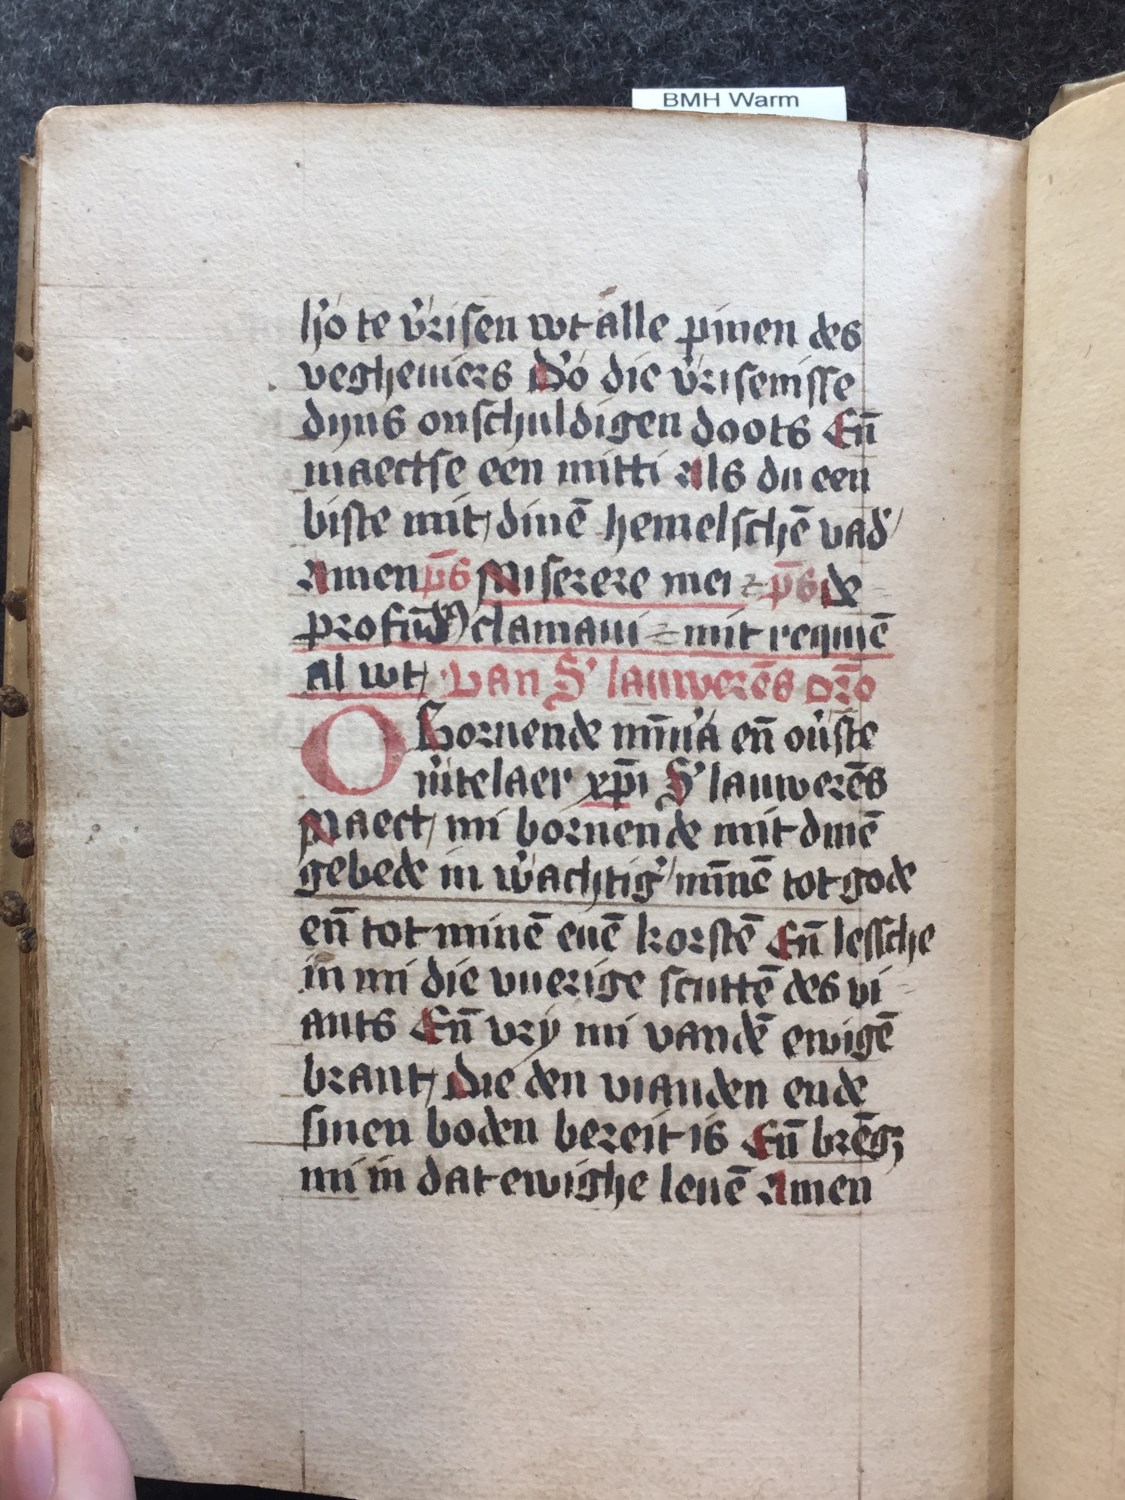 BMH Warm
h'o te v'risen wt alle pinen des
vegheuiers D'o die v'risenisse
dyns onschuldigen doots Eñ
maectse een mitti Als du een
biste mit dinē hemelschē vad'
Amen p̄s Miserere mei p̄s de
profūd clamaui mit requiē
al wt Van S' lauwerēs or̄o
O Bornende mīn'a eñ ou'ste
m'telaer xp̄i S' lauwerēs
Maect mi bornende mit dinē
gebede in w'achtig' mīnē tot gode
eñ tot minē euē korstē Eñ lessche
in mi die vuerige scuttē des vi
ants Eñ vry mi vandē ewigē
brant Die den vianden ende
sinen boden bereit is Eñ brēg
mi in dat ewighe leuē Amen